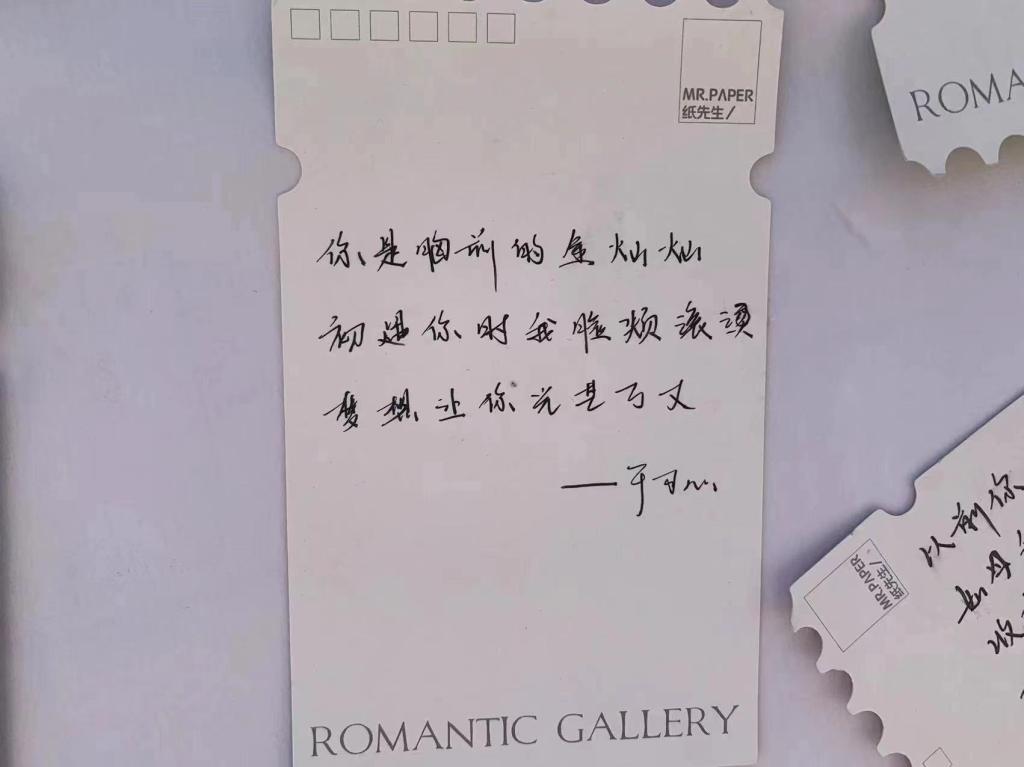 MR.PAPER
纸先生/
你是胸前的金灿灿
初遇你时我脸颊滚烫
梦想让你光芒万丈
ROMANTIC GALLERY
ROMA
MR.PAPER
纸先生/
以前你